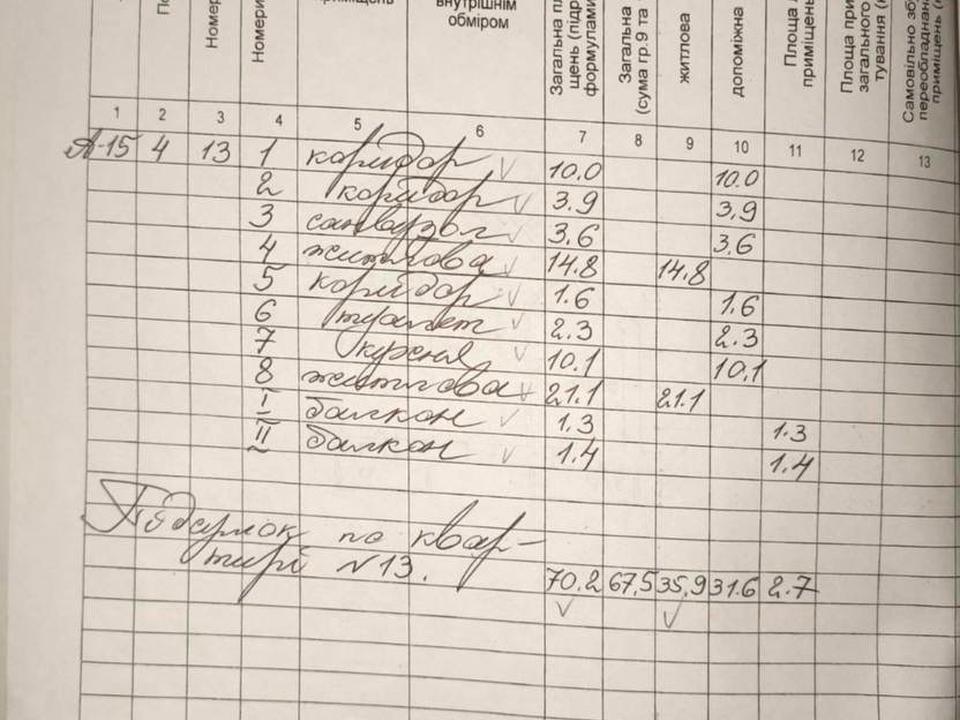 Номер
Номери
приміщень
внутрішнім
обміром
Загальна
щень
формулами
Загальна
(сума гр.9 та
житлова
допоміжна
Площа
приміщень
Площа
загального
тування
Самовільно
переобладнан
приміщень
1 2 3 4 5 6 7 8 9 10 11 12 13
А-15 4 13 1 коридор 10.0 10.0
2 коридор 3.9 3.9
3 санвузол 3.6 3.6
4 житлова 14.8 14.8
5 коридор 1.6 1.6
6 туалет 2.3 2.3
7 кухня 10.1 10.1
8 житлова 21.1 21.1
I балкон 1.3 1.3
II балкон 1.4 1.4
Підсумок по квар-
тирі №13. 70.2 67,5 35,9 31.6 2.7